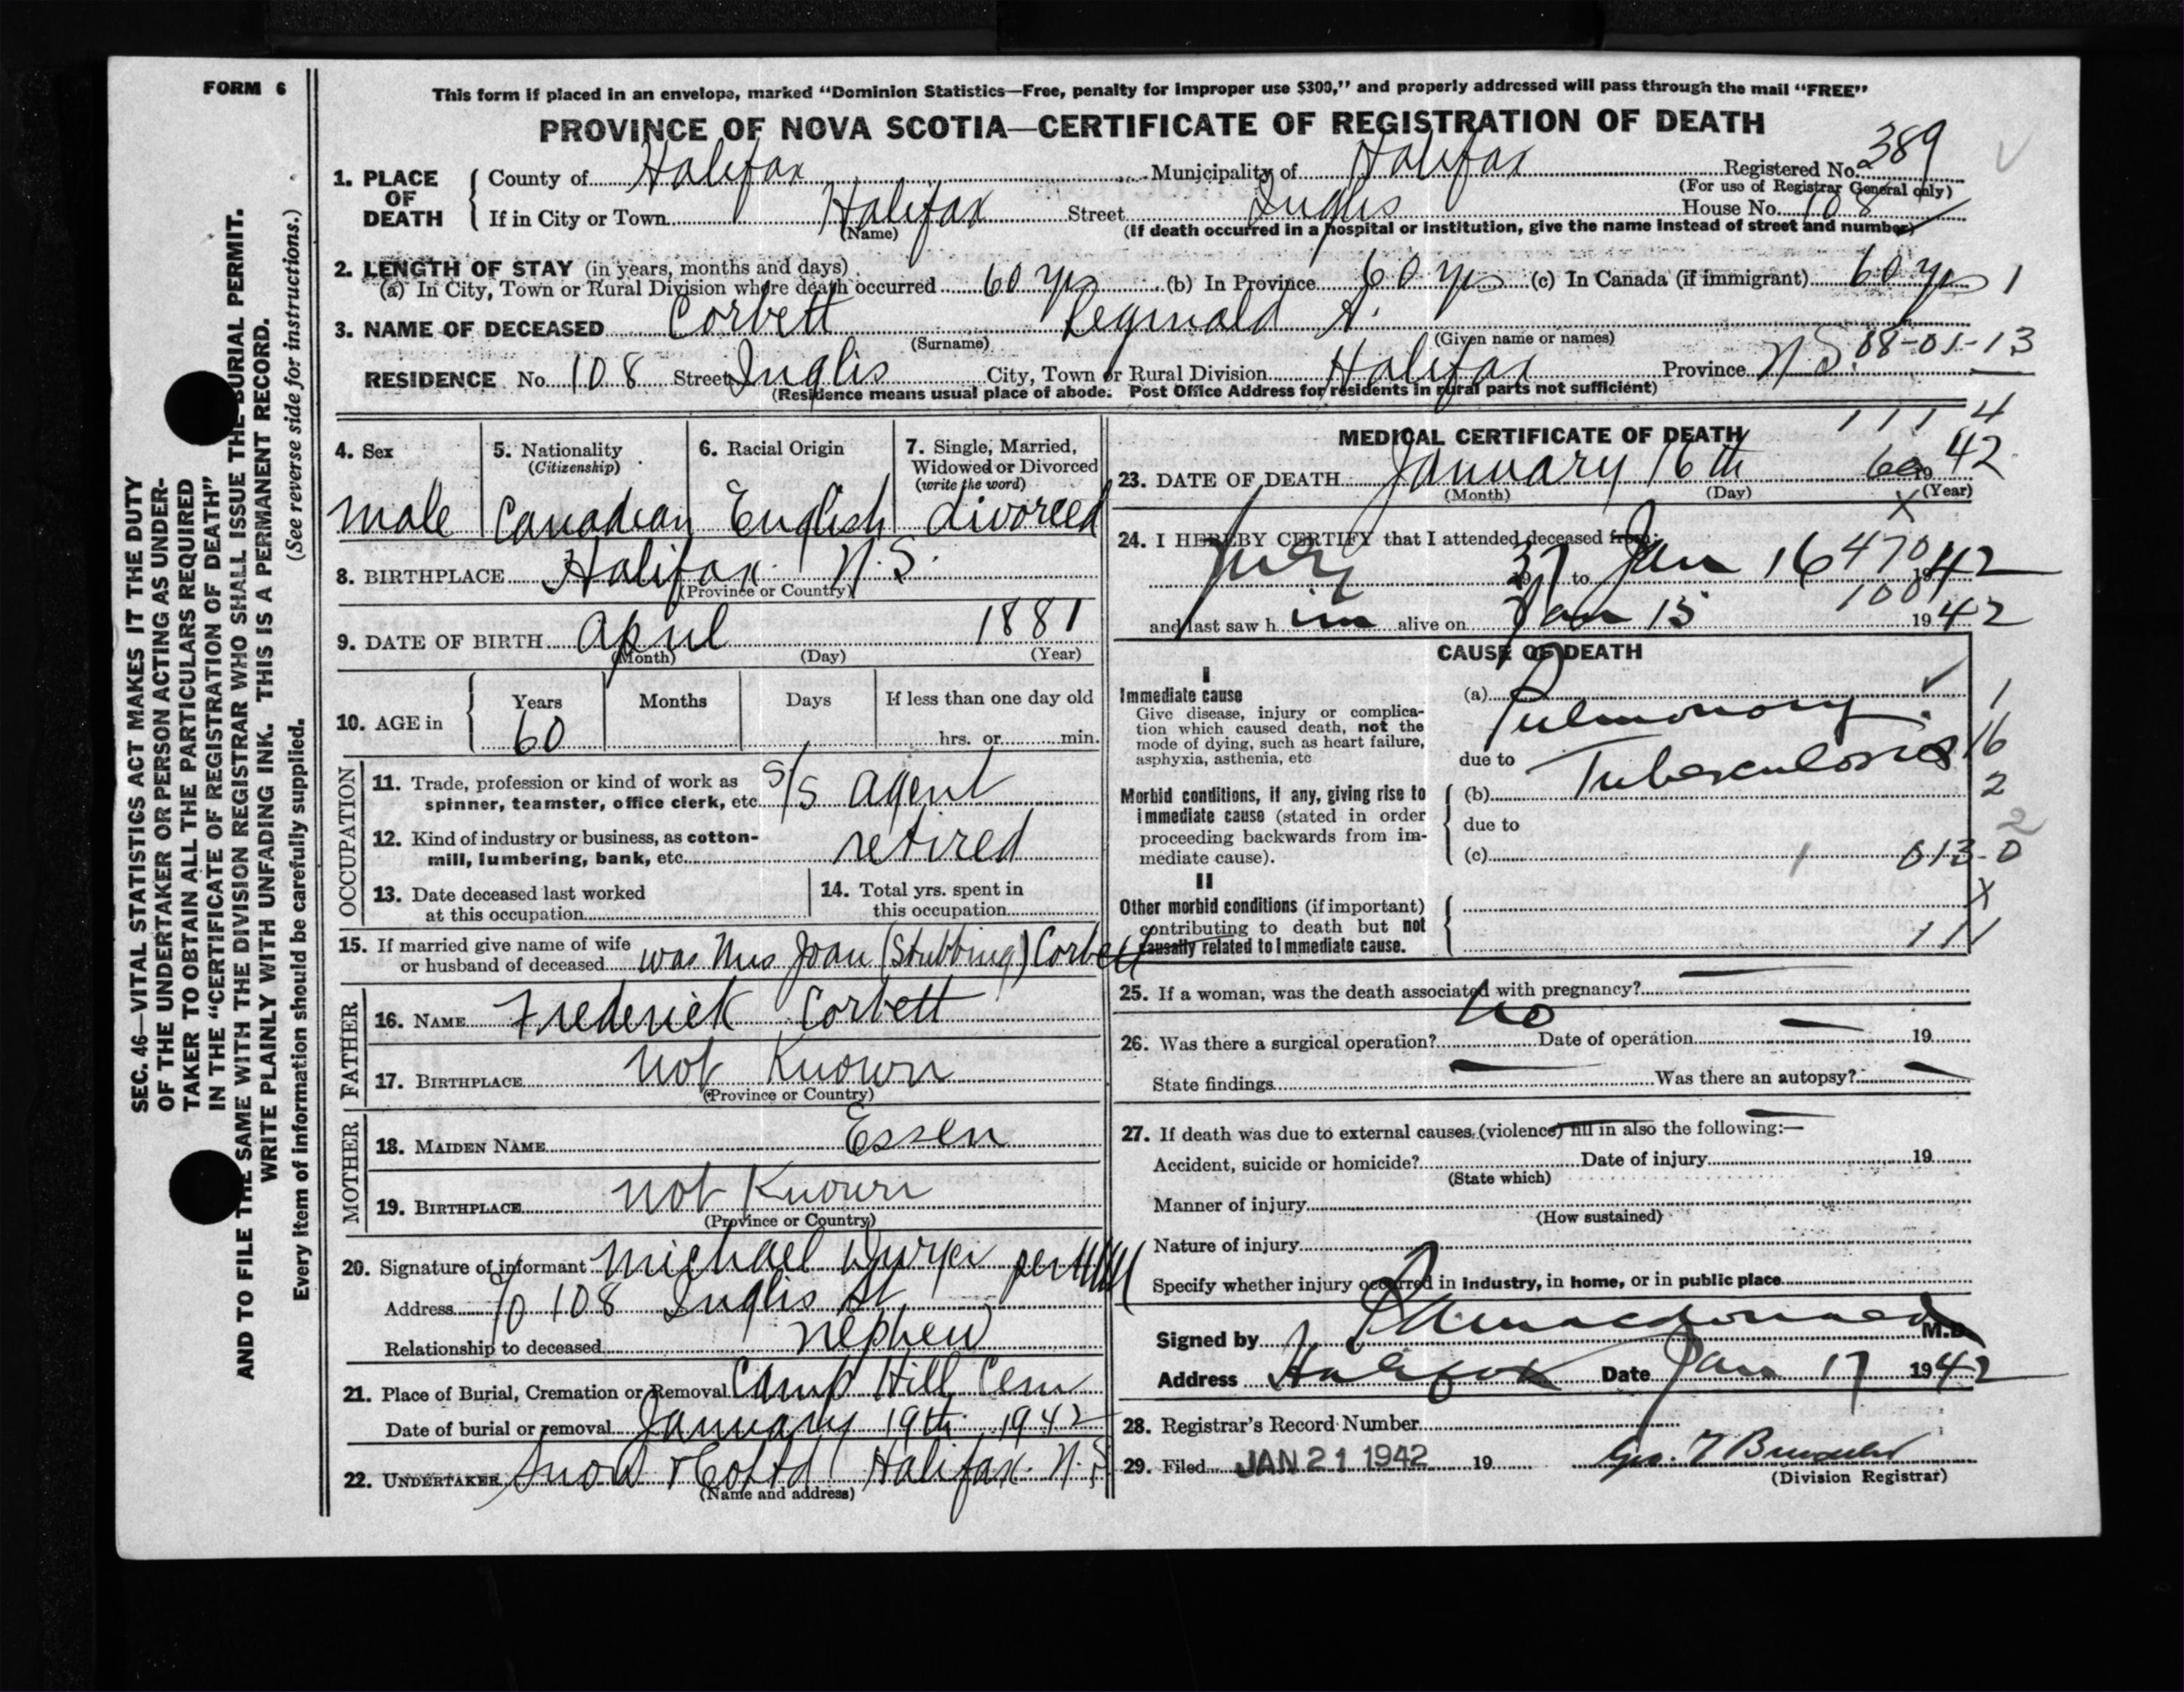 FORM 6
This form if placed in an envelope, marked "Dominion Statistics—Free, penalty for improper use $300," and properly addressed will pass through the mail "FREE"
PROVINCE OF NOVA SCOTIA—CERTIFICATE OF REGISTRATION OF DEATH
1. PLACE OF DEATH County of Halifax Municipality of Halifax Registered No. 389
(For use of Registrar General only)
If in City or Town Halifax Street Inglis House No. 108
(Name) (If death occurred in a hospital or institution, give the name instead of street and number)
2. LENGTH OF STAY (in years, months and days)
(a) In City, Town or Rural Division where death occurred 60 yrs (b) In Province 60 yrs (c) In Canada (if immigrant) 60 yrs 1
3. NAME OF DECEASED Corbett Reginald A.
(Surname) (Given name or names)
88-01-13
RESIDENCE No. 108 Street Inglis City, Town or Rural Division Halifax Province N.S.
(Residence means usual place of abode. Post Office Address for residents in rural parts not sufficient)
4. Sex 5. Nationality (Citizenship) 6. Racial Origin 7. Single, Married, Widowed or Divorced (write the word)
male Canadian English divorced
8. BIRTHPLACE Halifax N.S.
(Province or Country)
9. DATE OF BIRTH April 1881
(Month) (Day) (Year)
10. AGE in Years Months Days If less than one day old
60 hrs. or min.
OCCUPATION
11. Trade, profession or kind of work as
spinner, teamster, office clerk, etc. S/S agent
12. Kind of industry or business, as cotton-
mill, lumbering, bank, etc. retired
13. Date deceased last worked
at this occupation
14. Total yrs. spent in
this occupation
15. If married give name of wife
or husband of deceased was Mrs Joan (Stubbing) Corbett
FATHER
16. NAME Frederick Corbett
17. BIRTHPLACE not Known
(Province or Country)
MOTHER
18. MAIDEN NAME Essen
19. BIRTHPLACE not Known
(Province or Country)
20. Signature of informant Michael Dwyer per
Address c/o 108 Inglis St
Relationship to deceased nephew
21. Place of Burial, Cremation or Removal Camp Hill Cem
Date of burial or removal January 19th 1942
22. UNDERTAKER Snow & Co Ltd Halifax N.S
(Name and address)
1 1 1 4
MEDICAL CERTIFICATE OF DEATH
23. DATE OF DEATH January 16th 19 42
(Month) (Day) (Year)
24. I HEREBY CERTIFY that I attended deceased from:
37 to Jan 16 1942
and last saw h im alive on Jan 15 1942
CAUSE OF DEATH
I
Immediate cause
Give disease, injury or complica-
tion which caused death, not the
mode of dying, such as heart failure,
asphyxia, asthenia, etc
(a) Pulmonary
due to Tuberculosis
Morbid conditions, if any, giving rise to
immediate cause (stated in order
proceeding backwards from im-
mediate cause).
(b)
due to
(c)
1
16
2
2
013-0
X
111
II
Other morbid conditions (if important)
contributing to death but not
causally related to immediate cause.
25. If a woman, was the death associated with pregnancy?
26. Was there a surgical operation? No Date of operation 19
State findings Was there an autopsy?
27. If death was due to external causes (violence) fill in also the following:—
Accident, suicide or homicide? Date of injury 19
(State which)
Manner of injury
(How sustained)
Nature of injury
Specify whether injury occurred in industry, in home, or in public place
Signed by Macdonald M.D.
Address Halifax Date Jan 17 1942
28. Registrar's Record Number
29. Filed JAN 21 1942 19 Geo.
(Division Registrar)
SEC. 46—VITAL STATISTICS ACT MAKES IT THE DUTY
OF THE UNDERTAKER OR PERSON ACTING AS UNDER-
TAKER TO OBTAIN ALL THE PARTICULARS REQUIRED
IN THE "CERTIFICATE OF REGISTRATION OF DEATH"
AND TO FILE THE SAME WITH THE DIVISION REGISTRAR WHO SHALL ISSUE THE BURIAL PERMIT.
WRITE PLAINLY WITH UNFADING INK. THIS IS A PERMANENT RECORD.
Every item of information should be carefully supplied. (See reverse side for instructions.)